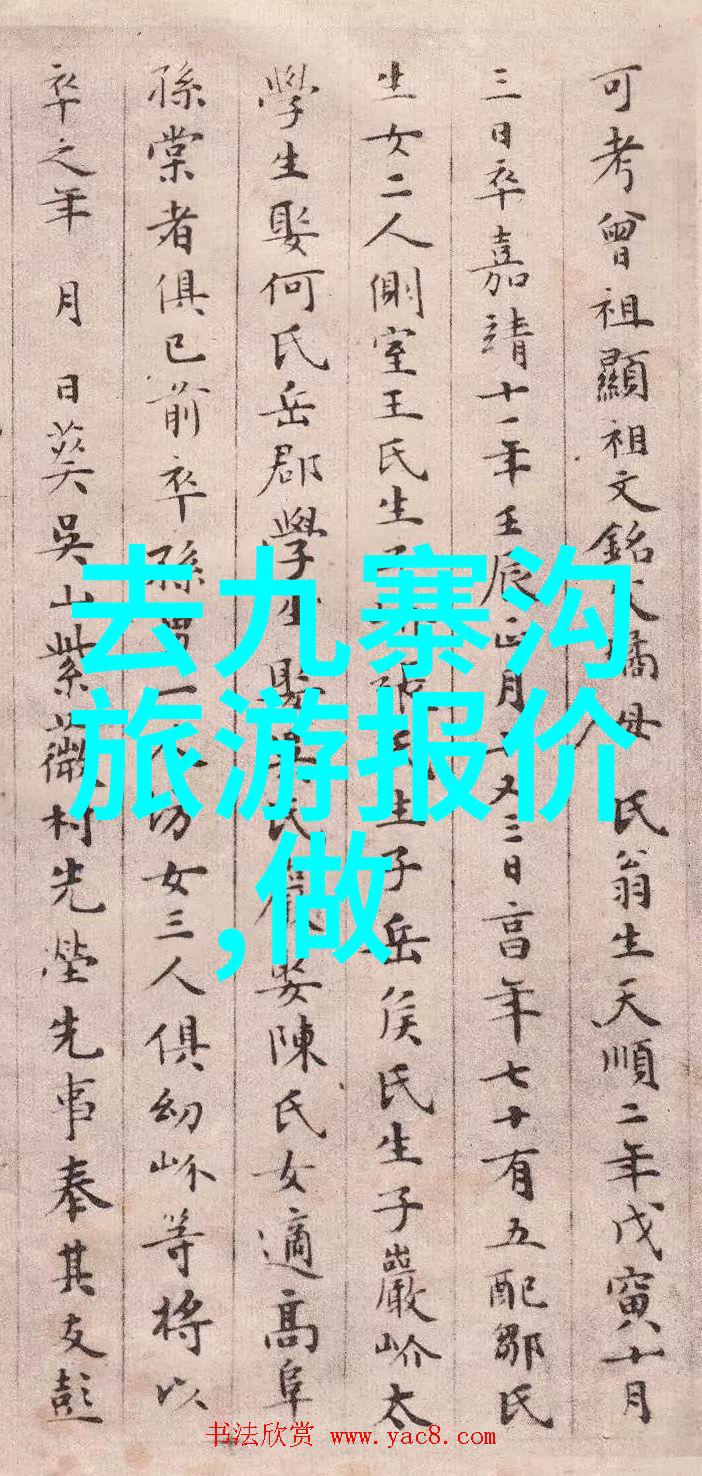 可考曾祖顯祖文銘父橘母 氏翁生天順二年戊寅十月
三日卒嘉靖十一年壬辰正月二又三日享年七十有五配鄒氏
生女二人側室王氏生子 氏生子岳侯氏生子巖岕太
學生娶何氏岳郡學生娶 氏 娶陳氏女適高阜
孫棠者俱已前卒孫男一人 幼女三人俱幼岕等將以
卒之年 月 日葬吳山紫薇村先塋先事奉其友彭
去九寨沟
旅游报价
,做
书法欣赏 www.yac8.com